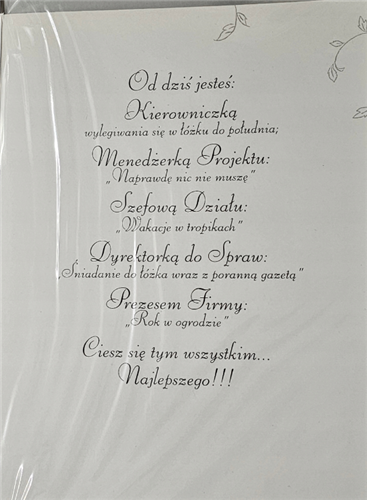 Od dziś jesteś:
Kierowniczką
wylegiwania się w łóżku do południa;
Menedżerką Projektu:
„Naprawdę nic nie muszę”
Szefową Działu:
„Wakacje w tropikach”
Dyrektorką do Spraw:
„Śniadanie do łóżka wraz z poranną gazetą”
Prezesem Firmy:
„Rok w ogrodzie”
Ciesz się tym wszystkim...
Najlepszego!!!